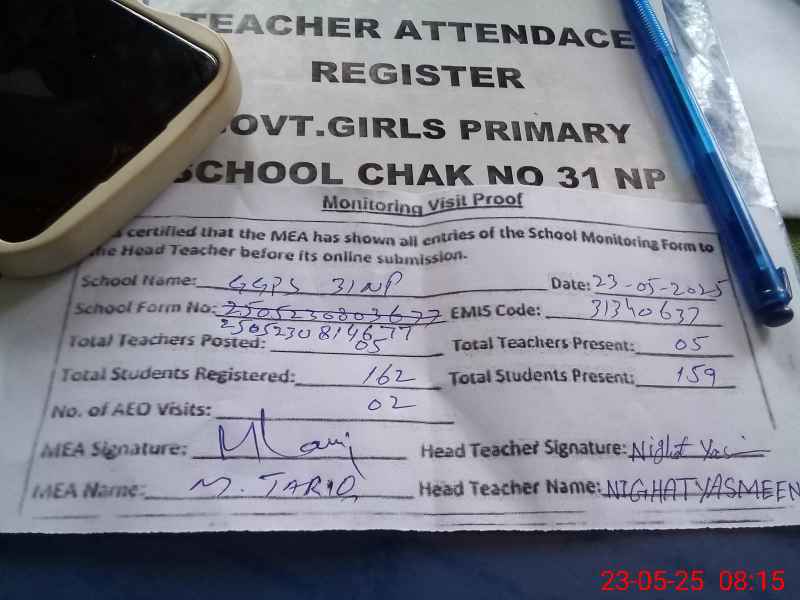 TEACHER ATTENDACE
REGISTER
OVT.GIRLS PRIMARY
SCHOOL CHAK NO 31 NP
Monitoring Visit Proof
certified that the MEA has shown all entries of the School Monitoring Form to
the Head Teacher before its online submission.
School Name: GGPS 31NP Date: 23-05-2025
School Form No: 2505230803677 EMIS Code: 31340637
2505230814677
Total Teachers Posted: 05 Total Teachers Present: 05
Total Students Registered: 162 Total Students Present: 159
No. of AEO Visits: 02
MEA Signature: Head Teacher Signature: Night Yas
MEA Name: M. TARIQ Head Teacher Name: NIGHAT YASMEEN
23-05-25 08:15